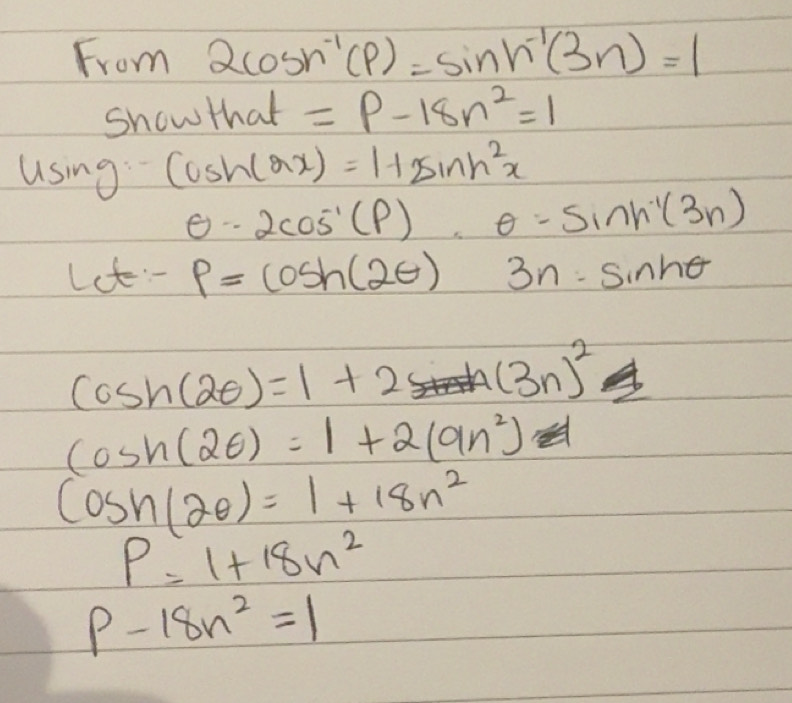 From 2cosh⁻¹(P) = sinh⁻¹(3n) = 1
Show that = P - 18n² = 1
Using:- Cosh(2x) = 1 + 2sinh²x
θ - 2cos⁻¹(P) . θ = Sinh⁻¹(3n)
Let:- P = Cosh(2θ) 3n = Sinhθ
Cosh(2θ) = 1 + 2(3n)²
Cosh(2θ) = 1 + 2(9n²)
Cosh(2θ) = 1 + 18n²
P = 1 + 18n²
P - 18n² = 1